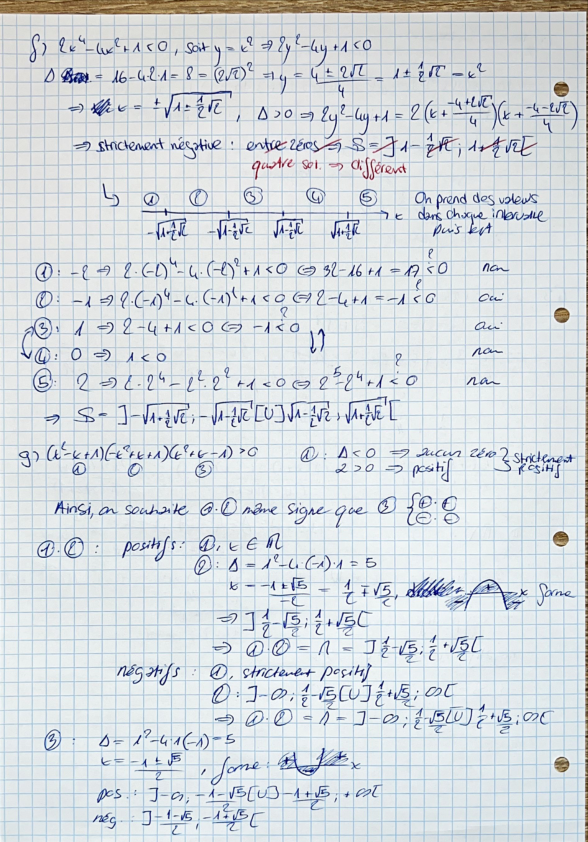 f) 2x⁴-4x²+1<0, soit y=x² ⇒ 2y²-4y+1<0
Δ = 16-4·2·1 = 8 = (2√2)² ⇒ y = (4±2√2)/4 = 1±½√2 = x²
⇒ x = ±√(1±½√2), Δ>0 ⇒ 2y²-4y+1 = 2(x+(-4+2√2)/4)(x+(-4-2√2)/4)
⇒ strictement négative : entre zéros ⇒ S = ]1-½√2 ; 1+½√2[
quatre sol. ⇒ différent
① ② ③ ④ ⑤ On prend des valeurs
x dans chaque intervalle
-√(1+½√2) -√(1-½√2) √(1-½√2) √(1+½√2) puis test
①: -2 ⇒ 2·(-2)⁴-4·(-2)²+1<0 ⇔ 32-16+1=17 <? 0 non
②: -1 ⇒ 2·(-1)⁴-4·(-1)²+1<0 ⇔ 2-4+1=-1 <? 0 oui
③: 1 ⇒ 2-4+1<0 ⇔ -1 <? 0 oui
④: 0 ⇒ 1<0 non
⑤: 2 ⇒ 2·2⁴-2²·2²+1<0 ⇔ 2⁵-2⁴+1 <? 0 non
⇒ S = ]-√(1+½√2) ; -√(1-½√2)[U]√(1-½√2) ; √(1+½√2)[
g) (x²-x+1)(-x²+x+1)(x²+x-1)>0 ①: Δ<0 ⇒ aucun zéro } strictement
① ② ③ 2>0 ⇒ positif } positif
Ainsi, on souhaite ①·② même signe que ③ { ⊕·⊕
⊖·⊖
①·② : positifs : ①, x ∈ ℝ
②: Δ = 1²-4·(-1)·1 = 5
x = (-1±√5)/-2 = 1/2 ∓ √5/2, x forme
⇒ ]1/2-√5/2 ; 1/2+√5/2[
⇒ ①·② = ∩ = ]1/2-√5/2 ; 1/2+√5/2[
négatifs : ①, strictement positif
②: ]-∞ ; 1/2-√5/2[U]1/2+√5/2 ; ∞[
⇒ ①·② = ∩ = ]-∞ ; 1/2-√5/2[U]1/2+√5/2 ; ∞[
③ : Δ = 1²-4·1(-1) = 5
x = (-1±√5)/2, forme : x
pos. : ]-∞ ; (-1-√5)/2[U](-1+√5)/2 ; +∞[
nég. : ](-1-√5)/2 ; (-1+√5)/2[